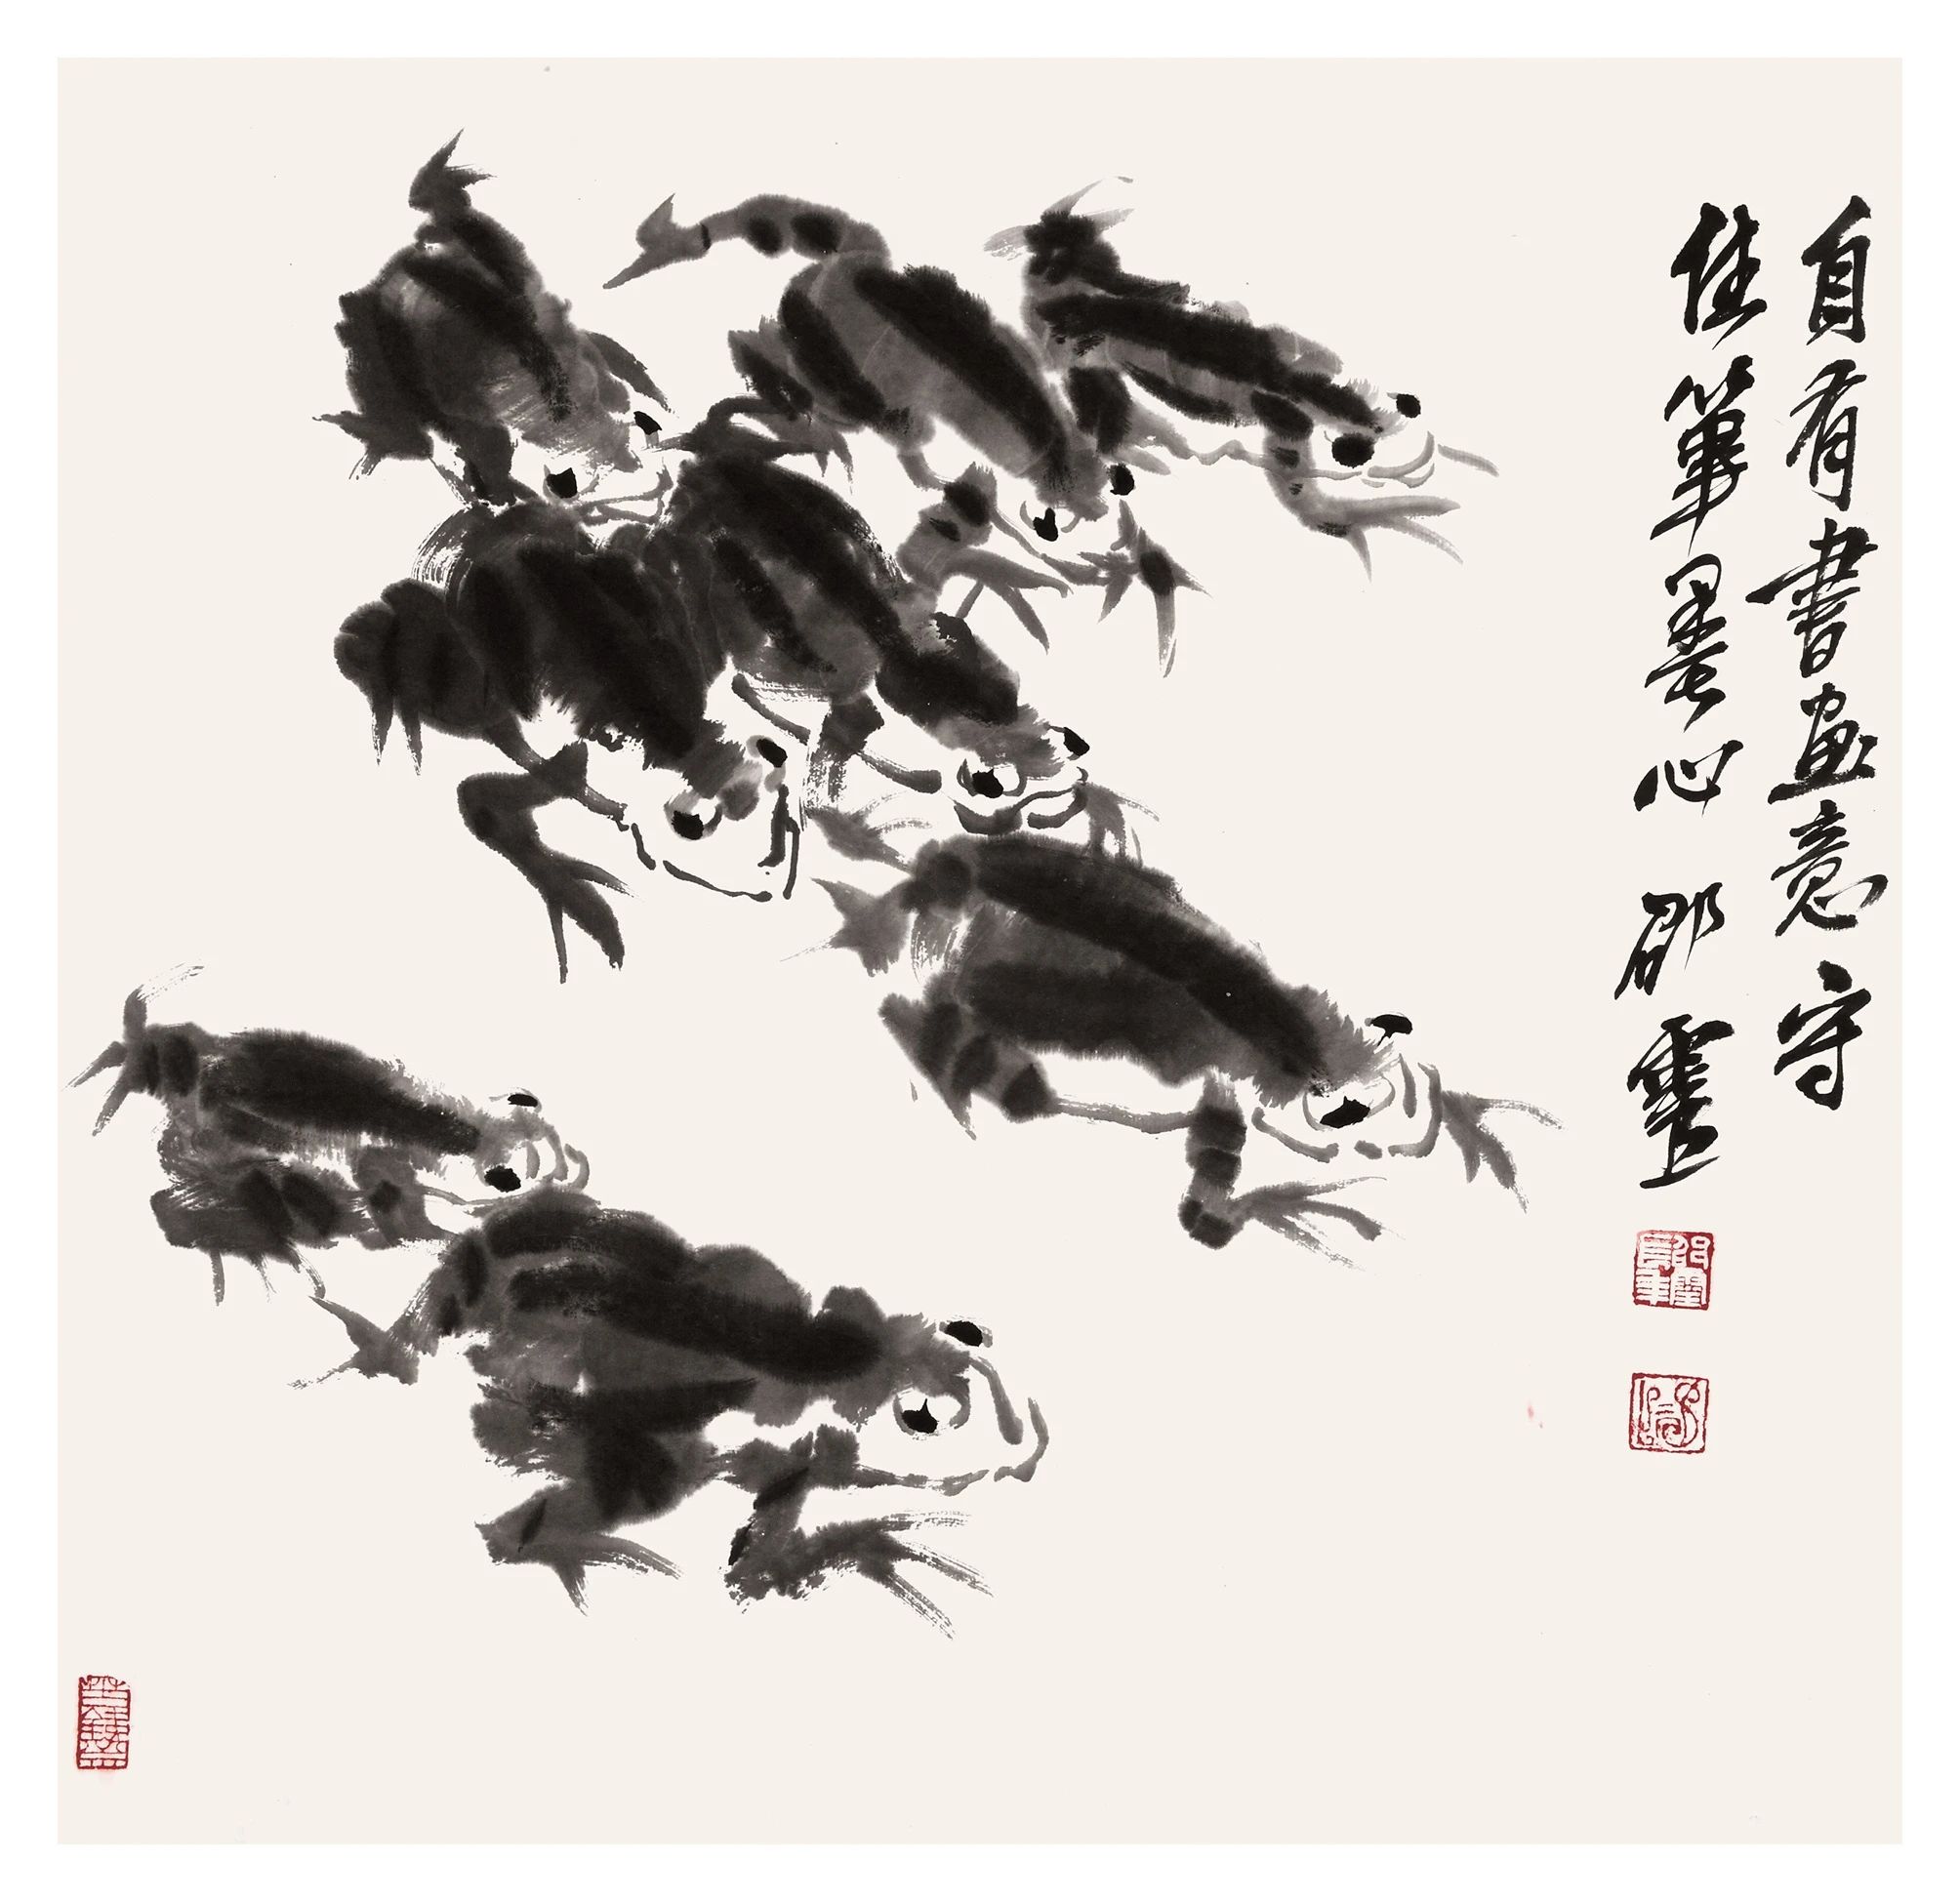 自有書畫意守
住筆墨心 邵靈